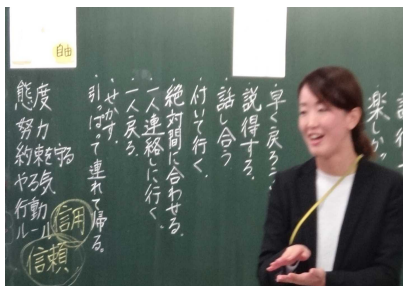 楽しかっ
・早く戻ろう
・説得する。
・話し合う
・付いて行く。
・絶対間に合わせる。
一人連絡しに行く。
・一人戻る。
・せかす。
・引っぱって連れて帰る。
自由
態度
努力
約束を守る
やる気
行動
ルール
信用
信頼